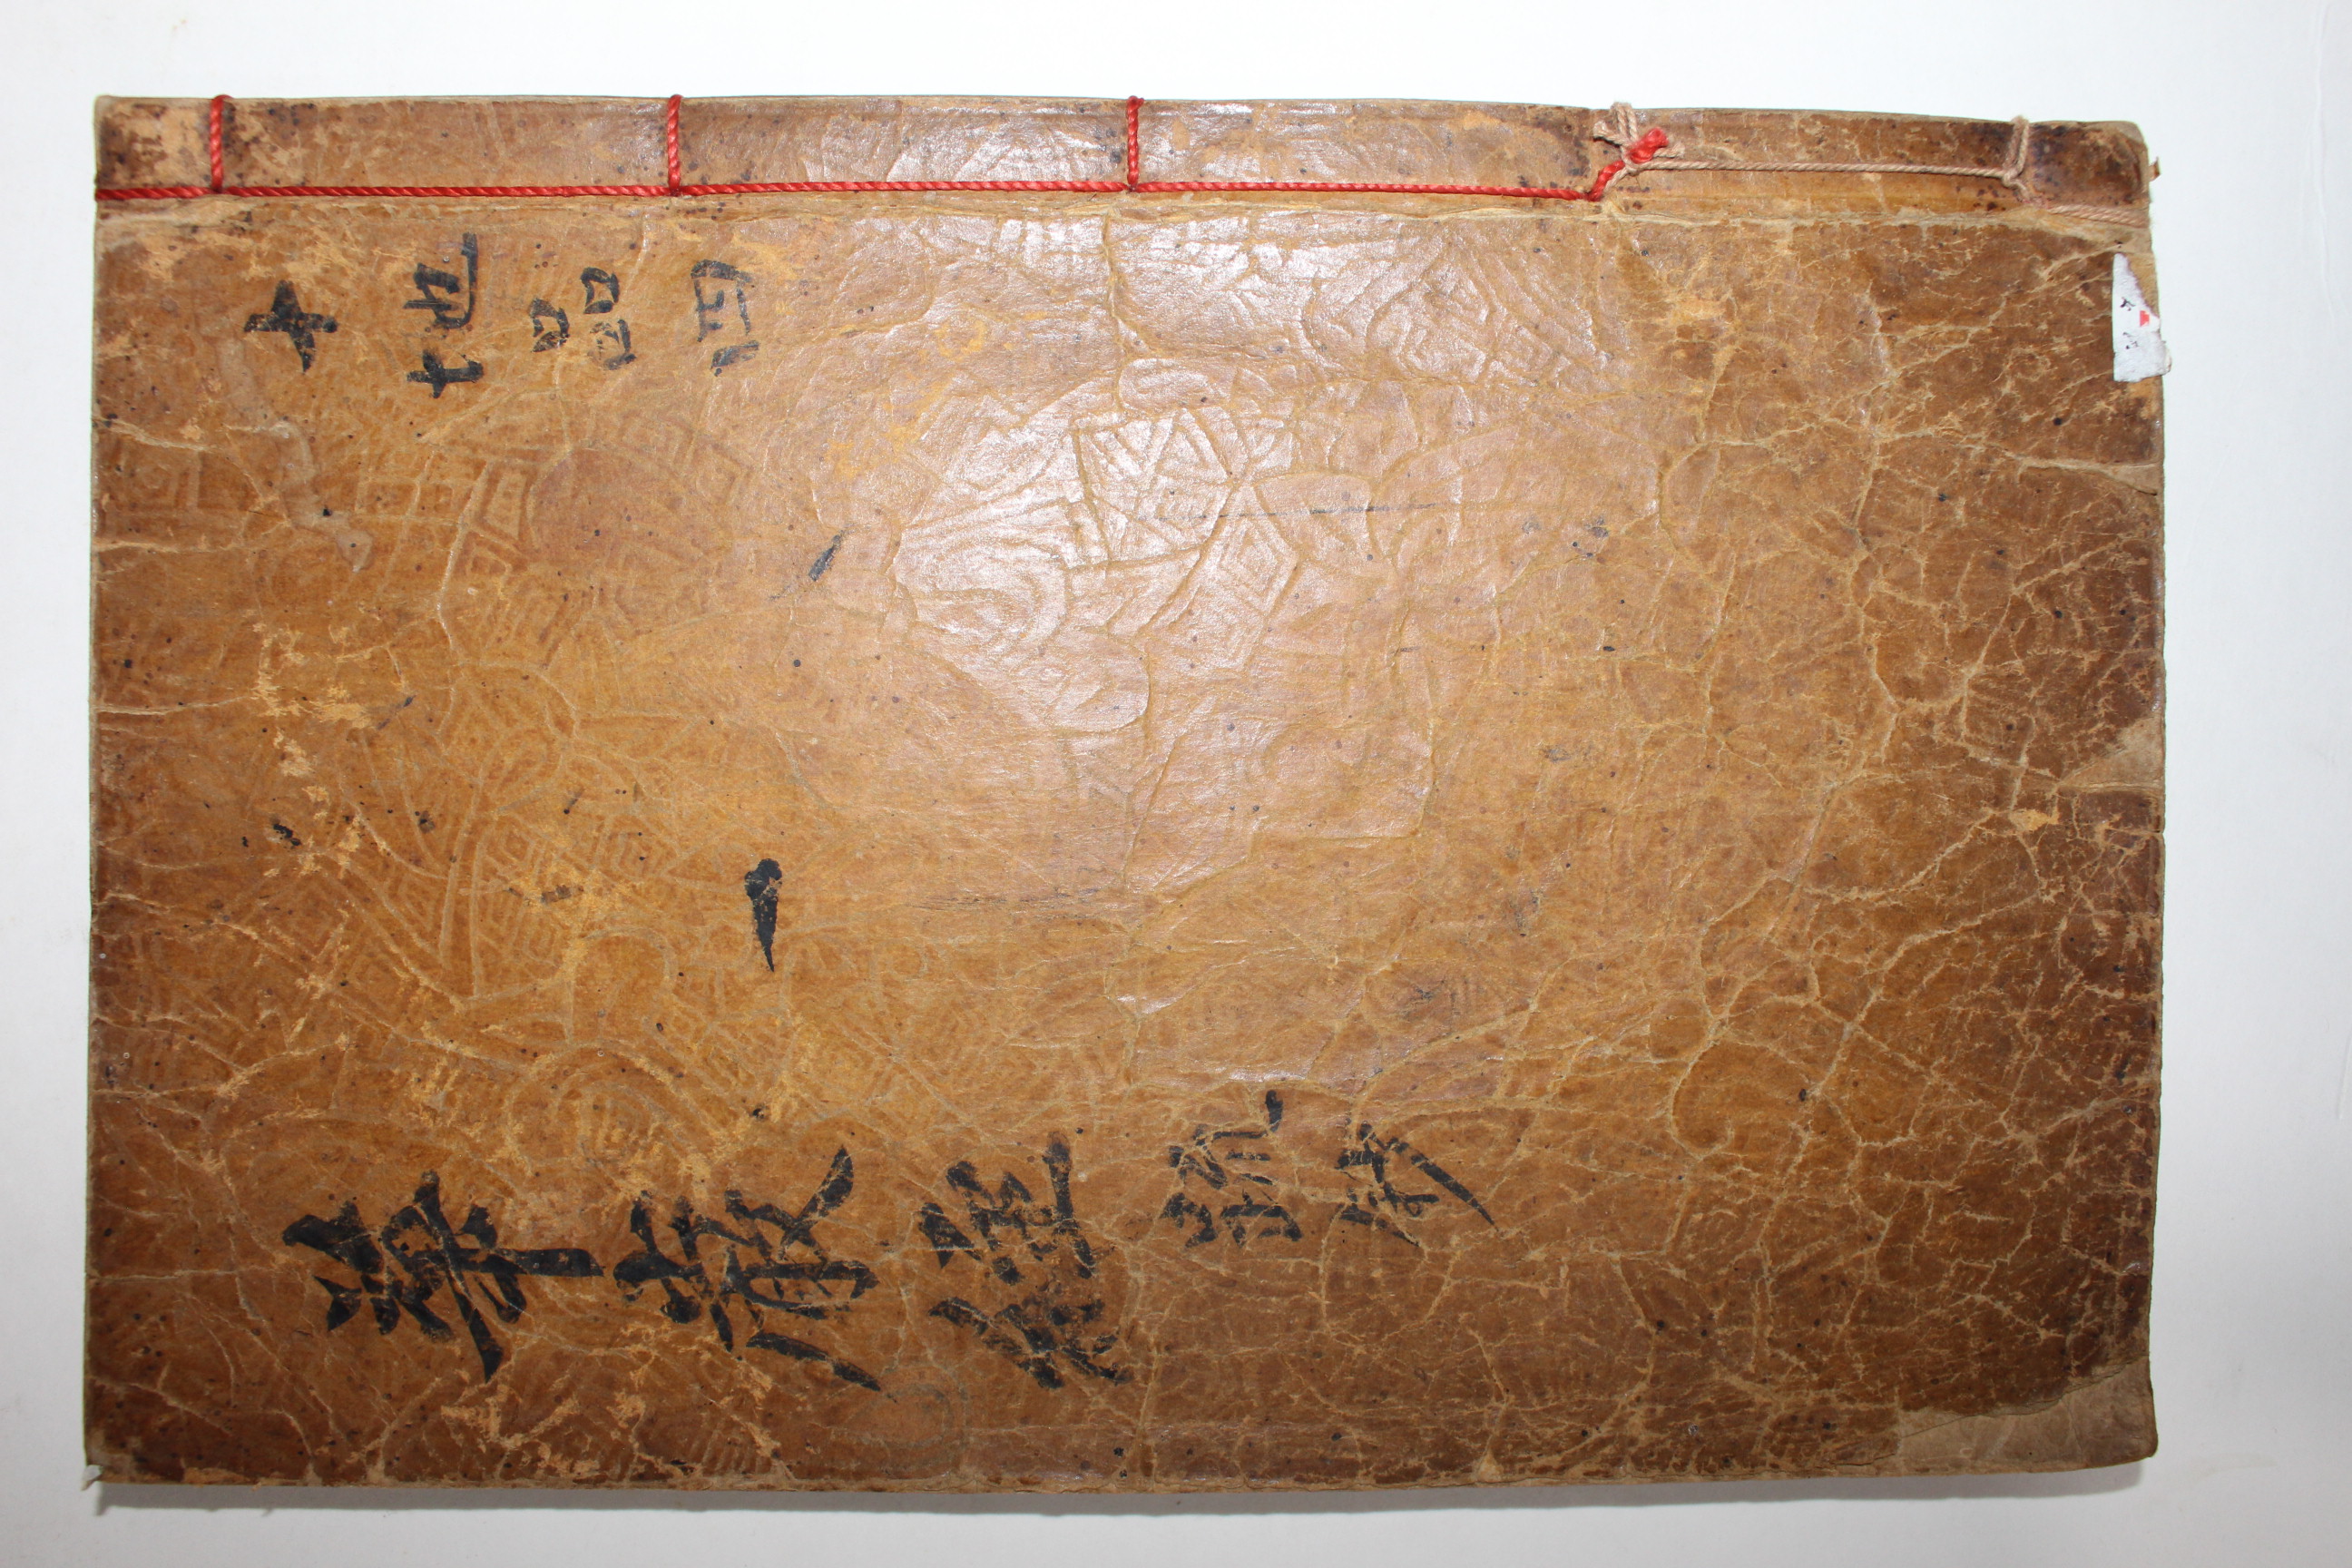 十地品四
華嚴經疏抄